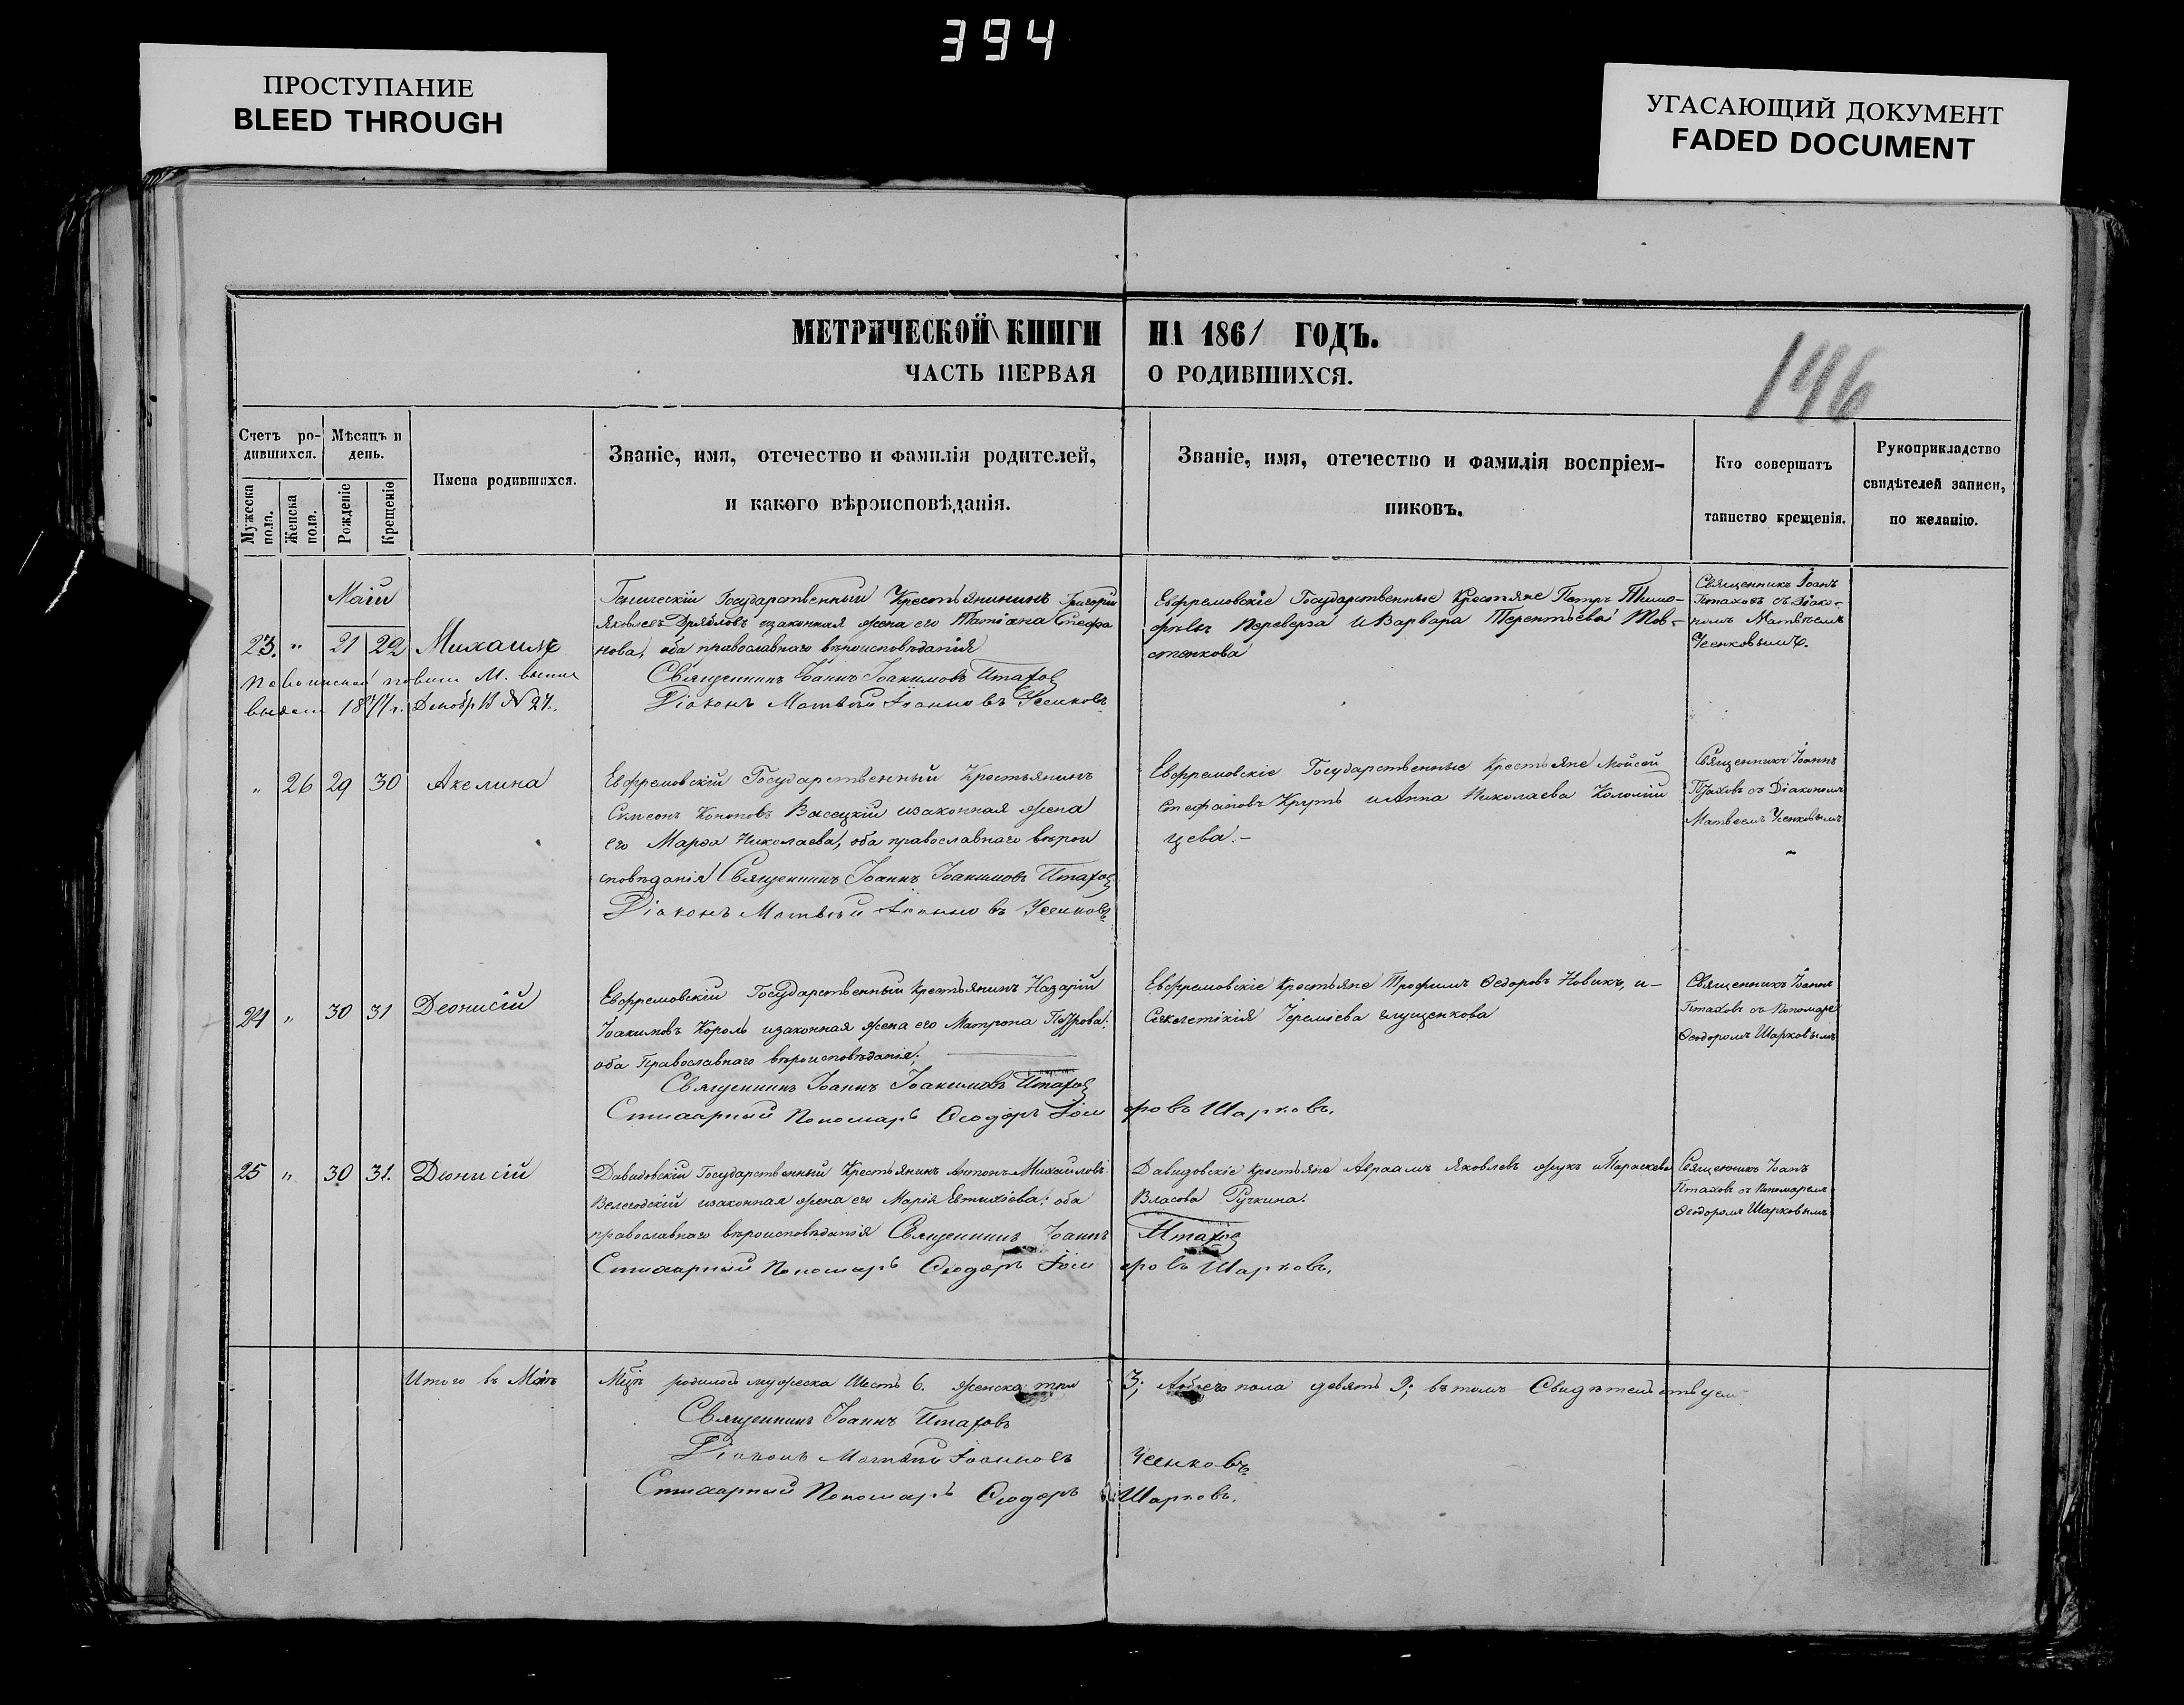 394
ПРОСТУПАНИЕ
BLEED THROUGH
УГАСАЮЩИЙ ДОКУМЕНТ
FADED DOCUMENT
МЕТРИЧЕСКОЙ КНИГИ НА 1861 ГОДЪ.
ЧАСТЬ ПЕРВАЯ О РОДИВШИХСЯ.
146
Счетъ ро-
дившихся.
Мужеска
пола.
Женска
пола.
Мѣсяцъ и
день.
Рожденіе
Крещеніе
Имена родившихся.
Званіе, имя, отечество и фамилія родителей,
и какого вѣроисповѣданія.
Званіе, имя, отечество и фамилія воспріем-
никовъ.
Кто совершатъ
таинство крещенія.
Рукоприкладство
свидѣтелей записи,
по желанію.
Маій
23. " 21 22 Михаилъ
выдана 1877 г. Декабр. № 27.
Геническій Государственный Крестьянинъ Григорій
Яковлевъ изаконная жена его Татіана Стефа
нова, оба православнаго вѣроисповѣданія
Священникъ Іоаннъ Іоакимовъ Птаховъ
Діаконъ Матвѣй Іоанновъ Усенковъ
Евфремовскіе Государственные Крестьяне Петръ Тимо-
фѣевъ Переверза и Варвара Терентьева Тов-
стенкова
Священникъ Іоанъ
Птаховъ съ Діако-
номъ Матвѣемъ
Усенковымъ.
" 26 29 30 Акелина
Евфремовскій Государственный Крестьянинъ
Симеонъ Кононовъ Васецкій изаконная жена
его Марфа Николаева, оба православнаго вѣрои
сповѣданія Священникъ Іоаннъ Іоакимовъ Птаховъ
Діаконъ Матвѣй Іоанновъ Усенковъ
Евфремовскіе Государственные Крестьяне Мойсей
Стефановъ Круть и Анна Николаева Коломій
цева.-
Священникъ Іоаннъ
Птаховъ съ Діакономъ
Матвеемъ Усенковымъ
24 " 30 31 Деонисій
Евфремовскій Государственный Крестьянинъ Назарій
Іоакимовъ Король изаконная жена его Матрона Петрова.
оба Православнаго вѣроисповѣданія;
Священникъ Іоаннъ Іоакимовъ Птаховъ
Стихарный Пономарь Ѳеодоръ Іоси фовъ Шарковъ.
Евфремовскіе Крестьяне Трофимъ Ѳедоровъ Новикъ, и-
Іереміева глущенкова
Священникъ Іоаннъ
Птаховъ съ Пономаре
Ѳеодоромъ Шарковымъ
25 " 30 31. Діонисій
Давидовскій Государственный Крестьянинъ Антонъ Михайловъ
Велегодскій изаконная жена его Марія Евтихіева; оба
православнаго вѣроисповѣданія Священникъ Іоаннъ Птаховъ
Стихарный Пономарь Ѳеодоръ Іоси фовъ Шарковъ.
Давидовскіе Крестьяне Авраамъ Яковлевъ Жукъ и Параскева
Власова Ручкина.
Священникъ Іоанъ
Птаховъ съ Пономаремъ
Ѳеодоромъ Шарковымъ
Итого въ Маіѣ Мцѣ родилось мужеска Шесть 6. женска три 3; Аобоего пола девять 9; въ томъ Свидѣтельствуем
Священникъ Іоаннъ Птаховъ
Діаконъ Матвѣй Іоанновъ Усенковъ
Стихарный Пономарь Ѳеодоръ Шарковъ.